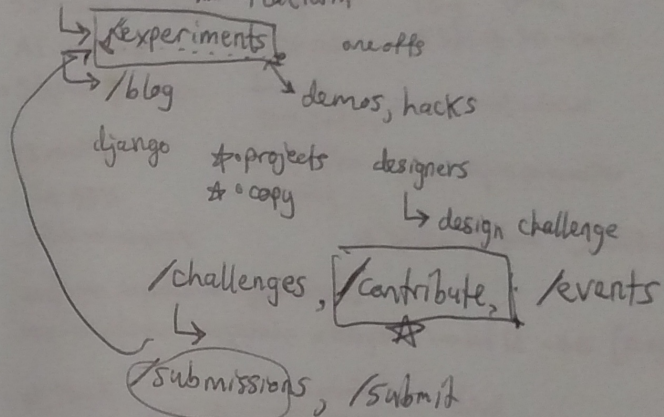 /experiments one offs
/blog demos, hacks
django projects designers
copy
design challenge
/challenges, /contribute, /events
/submissions, /submit